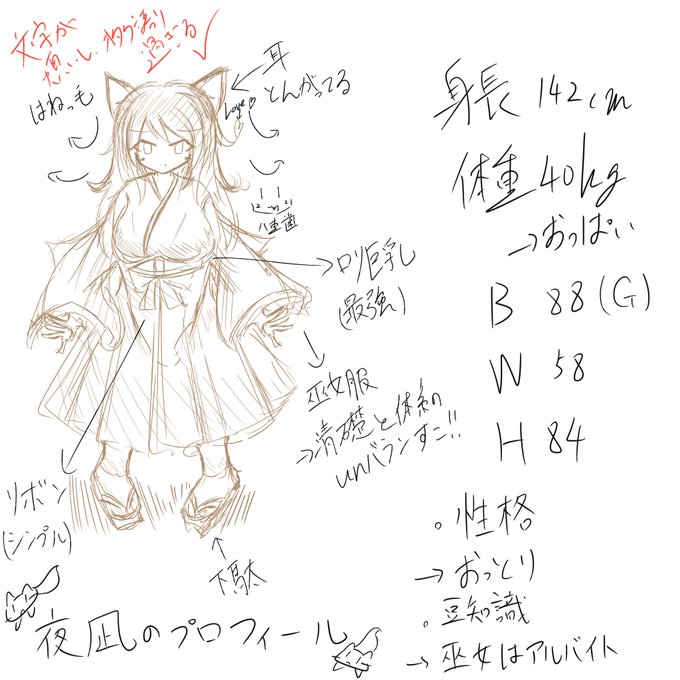 文字が
耳
とんがってる
はねっ毛
Love
八重歯
ロリ巨乳
(最強)
巫女服
→清礎と体系の
unバランすこ!!
リボン
(シンプル)
下駄
身長 142cm
体重 40kg
→おっぱい
B 88(G)
W 58
H 84
。性格
→おっとり
。豆知識
→巫女はアルバイト
夜凪のプロフィール